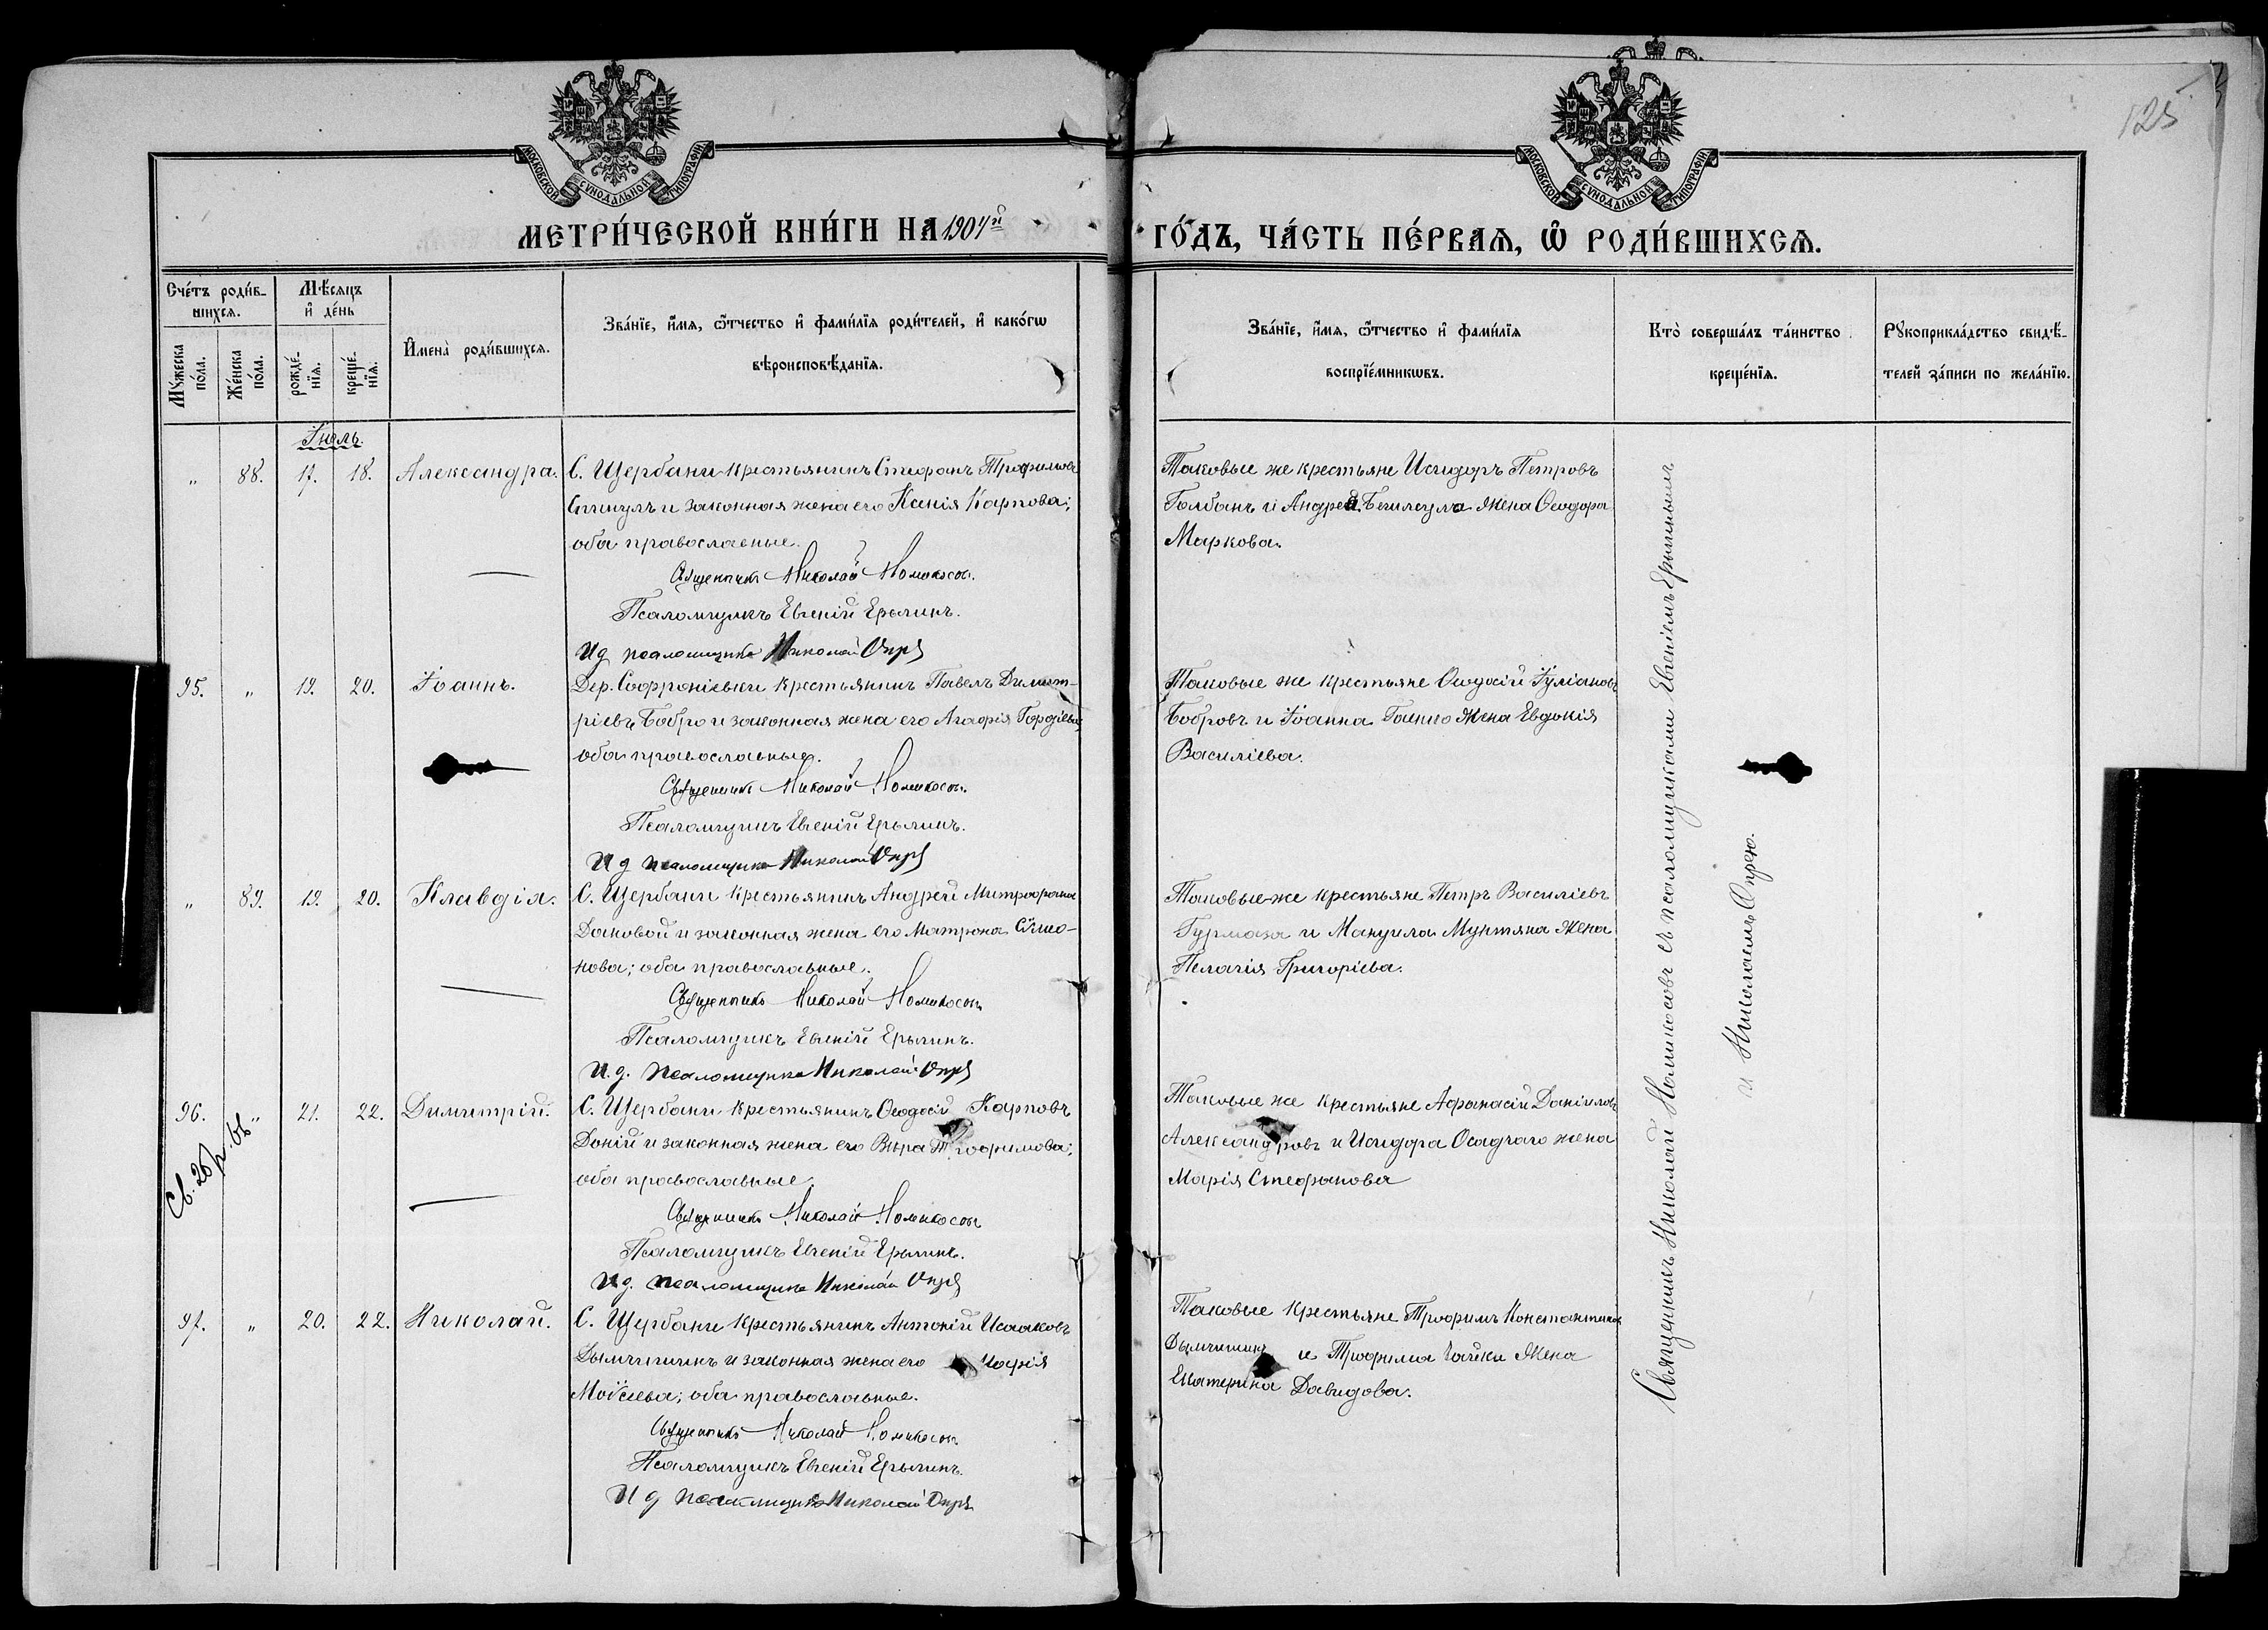 125
МОСКОВСКОЙ СУНОДАЛЬНОЙ ТИПОГРАФІИ
МОСКОВСКОЙ СУНОДАЛЬНОЙ ТИПОГРАФІИ
МЕТРИ́ЧЕСКОЙ КНИ́ГИ НА 1904й ГО́ДЪ, ЧА́СТЬ ПЕ́РВАѦ, Ѿ РОДИ́ВШИХСѦ.
Сче́тъ роди́в-
шихсѧ.
Мꙋ́жеска по́ла.
Же́нска по́ла.
Мѣ́сѧцъ и де́нь
рожде́-
нїѧ.
креще́-
нїѧ.
Имена̀ роди́вшихсѧ.
Зва́нїе, и́мѧ, ѻ́тчество и фами́лїѧ роди́телей, и како́гѡ
вѣроисповѣ́данїѧ.
Зва́нїе, и́мѧ, ѻ́тчество и фами́лїѧ
воспрїе́мникѡвъ.
Кто̀ соверша́лъ та́инство
креще́нїѧ.
Рꙋкоприкла́дство свидѣ́-
телей за́писи по жела́нїю.
Іюль.
" 88. 17. 18. Александра. С. Щербани крестьянинъ Стефанъ Трофимовъ
и законная жена его Ксенія Карпова;
оба православные.
Священникъ Николай Номикосовъ.
Псаломщикъ Евгеній Ерылинъ.
И д псаломщика Николай Опря
Таковые же крестьяне Исидоръ Петровъ
Голбанъ и Андрея жена Ѳеодора
Маркова.
95. " 19. 20. Іоаннъ. Дер. Софроніевки крестьянинъ Павелъ Димит-
ріевъ Бобро и законная жена его Агафія Гордіева;
оба православные.
Священникъ Николай Номикосовъ.
Псаломщикъ Евгеній Ерылинъ.
И д псаломщика Николай Опря
Таковые же крестьяне Ѳеодосій Іуліановъ
Бобровъ и Іоанна жена Евдокія
Василіева.
" 89. 19. 20. Клавдія. С. Щербани крестьянинъ Андрей Митрофанов
Даковой и законная жена его Матрона Сѵмо-
нова; оба православные.
Священникъ Николай Номикосовъ
Псаломщикъ Евгеній Ерылинъ.
И. д. псаломщика Николай Опря
Таковые же крестьяне Петръ Василіевъ
Гурмаза и Мануила Мунтяна жена
Пелагія Григоріева.
96. " 21. 22. Димитрій. С. Щербани крестьянинъ Ѳеодосій Карповъ
Доній и законная жена его Вѣра Трофимова;
оба православные.
Священникъ Николай Номикосовъ
Псаломщикъ Евгеній Ерылинъ.
И д. псаломщика Николай Опря
Таковые же крестьяне Афанасій Даніиловъ
Александровъ и Исидора Осадчаго жена
Марія Стефанова
97. " 20. 22. Николай. С. Щербани крестьянинъ Антоній Исааковъ
Дымчишинъ и законная жена его
Моѵсеева; оба православные.
Священникъ Николай Номикосовъ
Псаломщикъ Евгеній Ерылинъ.
И д псаломщика Николай Опря
Таковые крестьяне Трофимъ Константиновъ
Дымчишинъ и Трофима Чайки жена
Екатерина Давидова.
Священникъ Николай Номикосовъ съ псаломщиками Евгеніемъ Ерылинымъ
и Николаемъ Опрею.